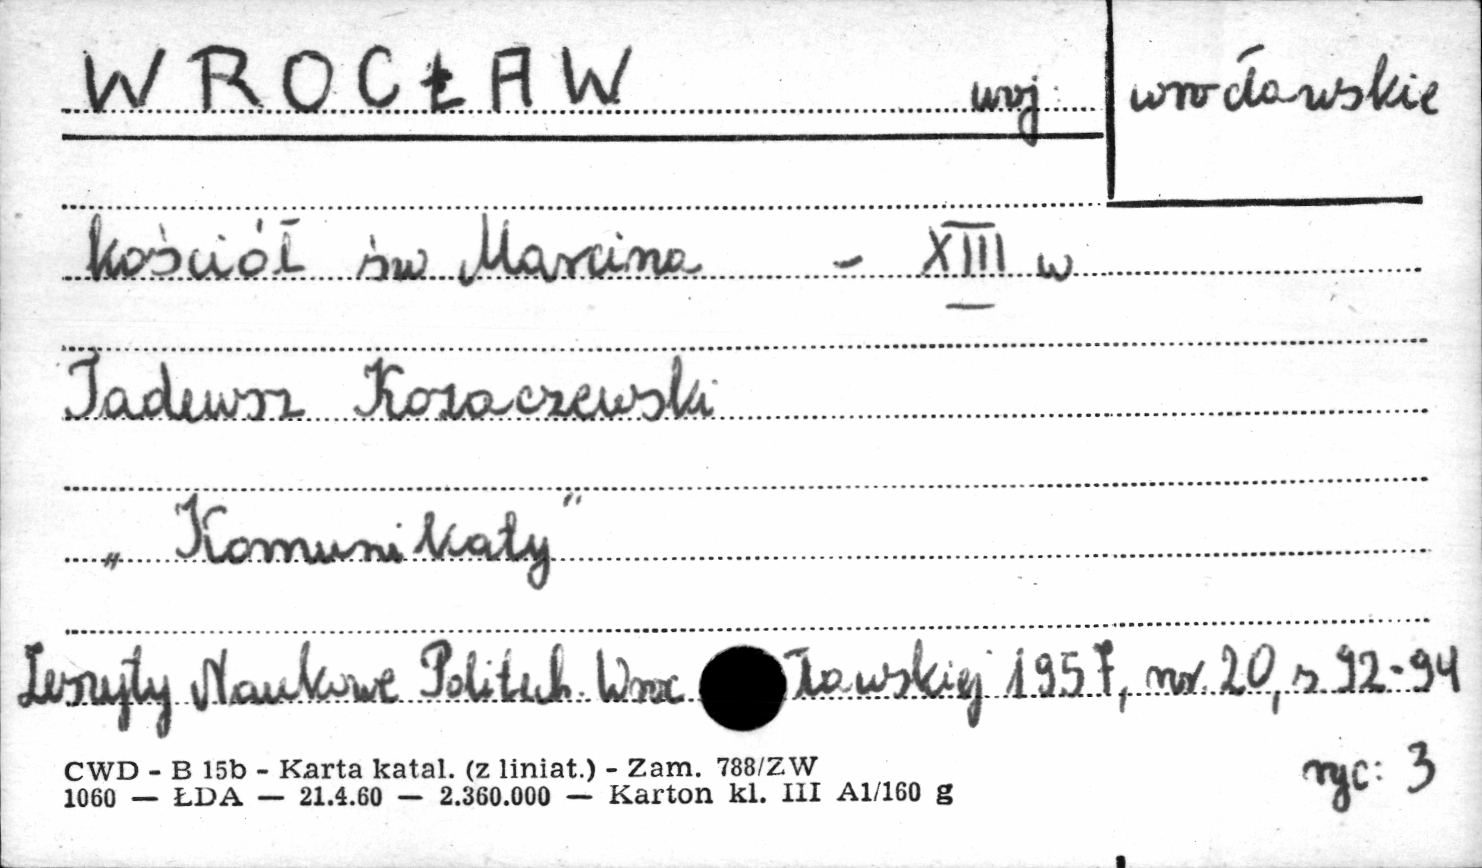 WROCŁAW woj: wrocławskie
kościół św Marcina - XIII w
Tadeusz Kozaczewski
„Komunikaty"
Zeszyty Naukowe Politech. Wrocławskiej 1957, nr. 20, s. 92-94
ryc: 3
CWD - B 15b - Karta katal. (z liniat.) - Zam. 788/ZW
1060 — ŁDA — 21.4.60 — 2.360.000 — Karton kl. III A1/160 g